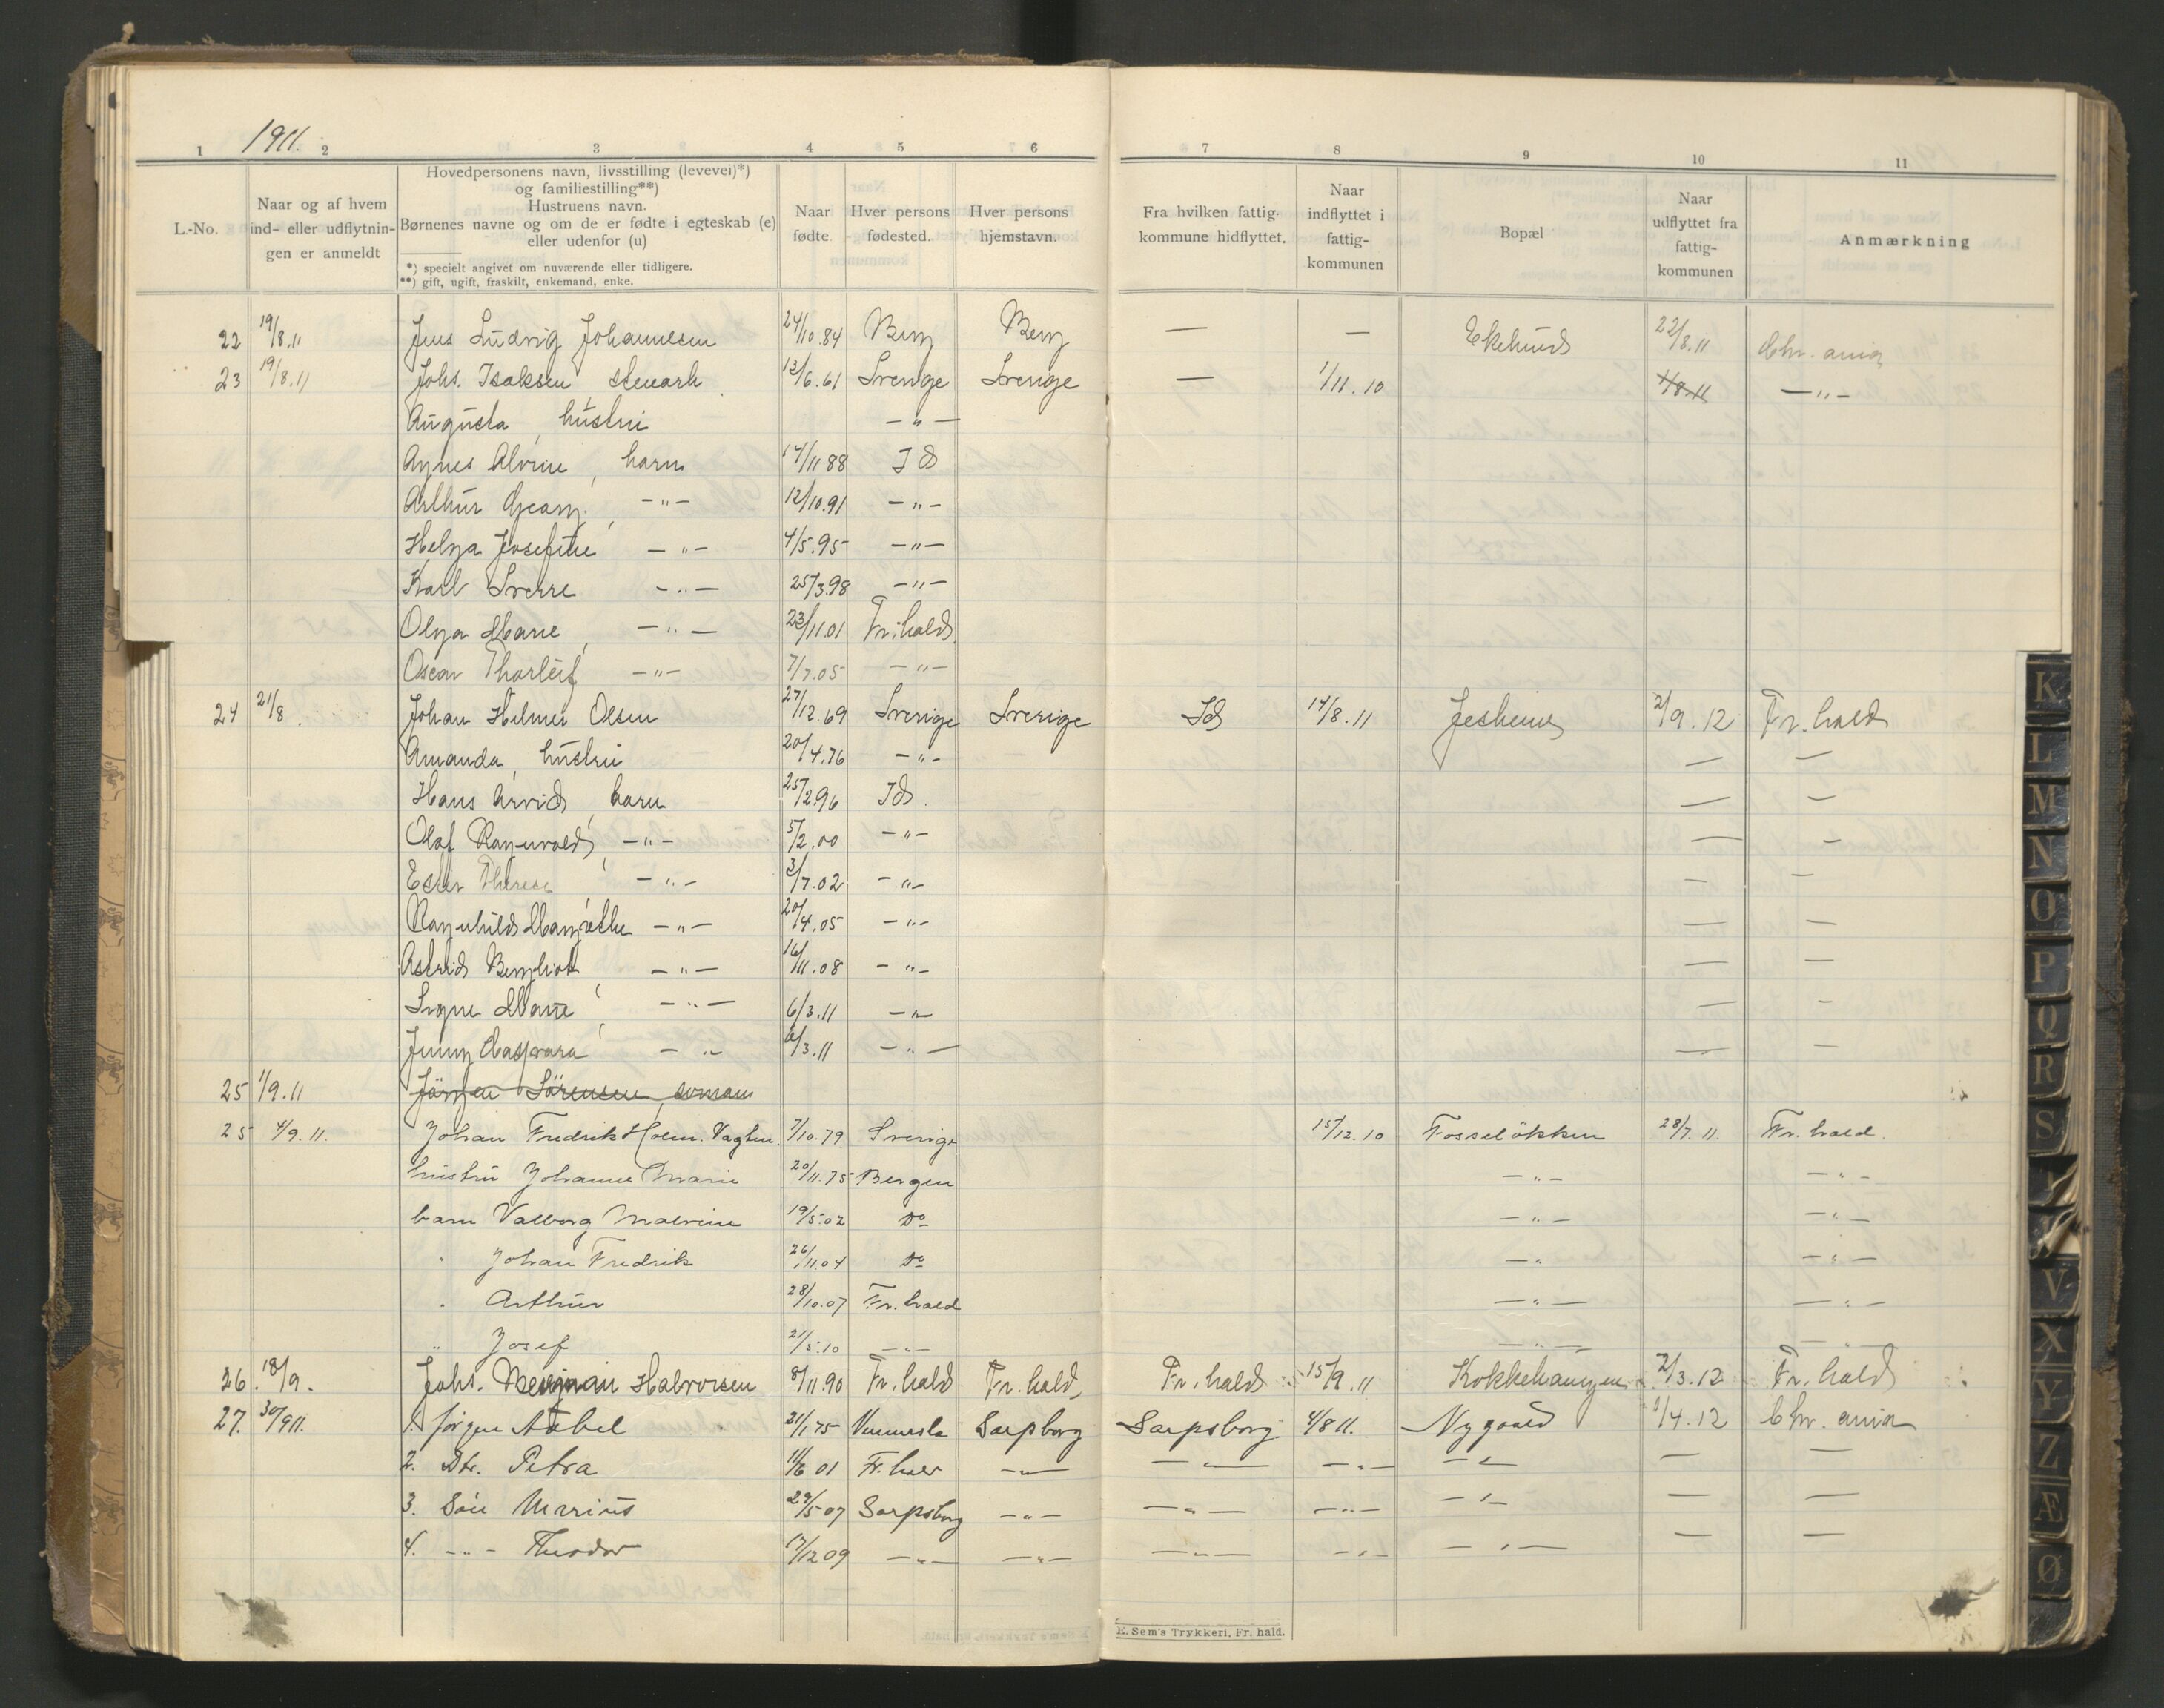 1911.
1 2 3 4 5 6 7 8 9 10 11
L.-No.
Naar og af hvem
ind- eller udflytnin-
gen er anmeldt
Hovedpersonens navn, livsstilling (levevei)*)
og familiestilling**)
Hustruens navn.
Børnenes navne og om de er fødte i egteskab (e)
eller udenfor (u)
*) specielt angivet om nuværende eller tidligere.
**) gift, ugift, fraskilt, enkemand, enke.
Naar
fødte.
Hver persons
fødested.
Hver persons
hjemstavn.
Fra hvilken fattig-
kommune hidflyttet.
Naar
indflyttet i
fattig-
kommunen
Bopæl
Naar
udflyttet fra
fattig-
kommunen
Anmærkning
22 19/8.11 Jens Ludvig Johannesen 24/10.84 Berg Berg — — Ekelund 22/8.11 Chr. ania
23 19/8.11 Johs. Isaksen stenarb. 13/6.61 Sverige Sverige — 1/11.10 1/8.11 —"—
Augusta, hustru —"—
Agnes Alvine, barn 14/11 88 Id
Arthur Georg, —"— 12/10.91 —"—
Helga Josefine —"— 4/5.95 —"—
Karl Sverre —"— 25/3.98 —"—
Olga Marie, —"— 23/11.01 Fr.hald
Oscar Thorleif, —"— 7/7.05 —"—
24 21/8. Johan Helmer Olsen 27/12.69 Sverige Sverige Id 14/8.11 2/9.12 Fr.hald
Amanda, hustru 20/4.76 —"— — —
Hans Arvid, barn 25/2.96 Id. — —
Olaf Ragnvald, —"— 5/2.00 —"— — —
Ester Therese, —"— 3/7.02 —"— — —
Ragnhild Margrethe —"— 20/4.05 —"— — —
Astrid Bergliot, —"— 16/11.08 —"— — —
Signe Marie, —"— 6/3.11 —"— — —
Jenny Kaspara —"— 6/3.11 —"— — —
25 1/9.11 Jörgen Sörensen, sömand
25 4/9.11. Johan Fredrik Holm. Vagtm. 7/10.79 Sverige 15/12.10 Fosselökken 28/7.11. Fr.hald.
hustru Johanne Marie 20/11.75 Bergen —"— —"—
barn Valborg Malvine 19/5.02 Do —"— —"—
" Johan Fredrik 26/11.04 Do —"— —"—
" Arthur 28/10.07 Fr.hald —"— —"—
" Josef 21/5.10 —"— —"— —"—
26. 18/9. Johs. Halvorsen 8/11.90 Fr.hald Fr.hald, Fr.hald 15/9.11 2/3.12 Fr.hald
27. 30/911. 1. Jørgen Aabel 21/1 75 Vennesla Sarpborg Sarpsborg 4/8 11. Nygaard 1/4.12 Chr. ania
2. Dtr. Petra 11/6 01 Fr.hald —"— —"— —"— —"— — —
3. Sön Marius 29/5 07 Sarpsborg —"— —"— —"— —"— — —
4. —"— Theodor 17/12 09 —"— —"— —"— —"— —"— — —
E. Sem's Trykkeri, Fr. hald.
K
L
M
N
O
P
Q
R
S
V
X
Y
Z
Æ
Ø